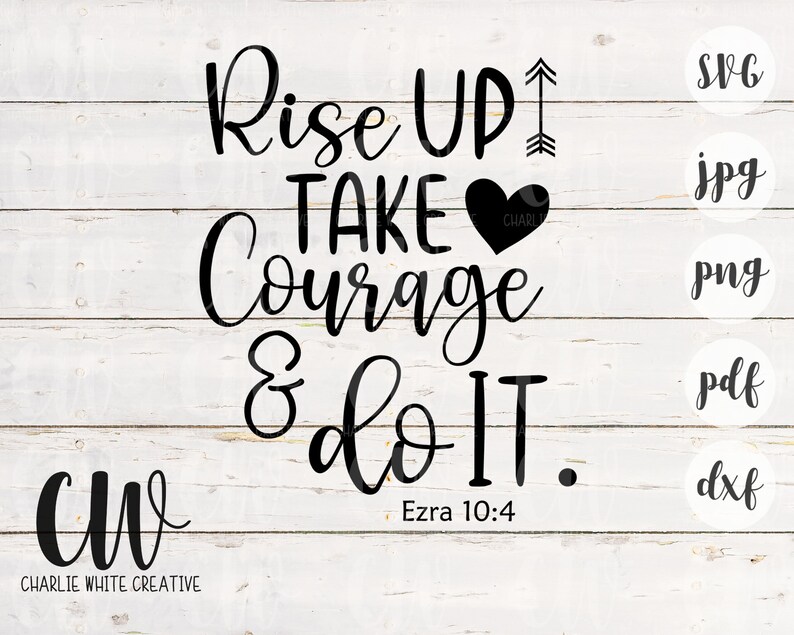 Rise UP
TAKE
Courage
& do IT.
Ezra 10:4
SVG
jpg
png
pdf
dxf
CW
CHARLIE WHITE CREATIVE